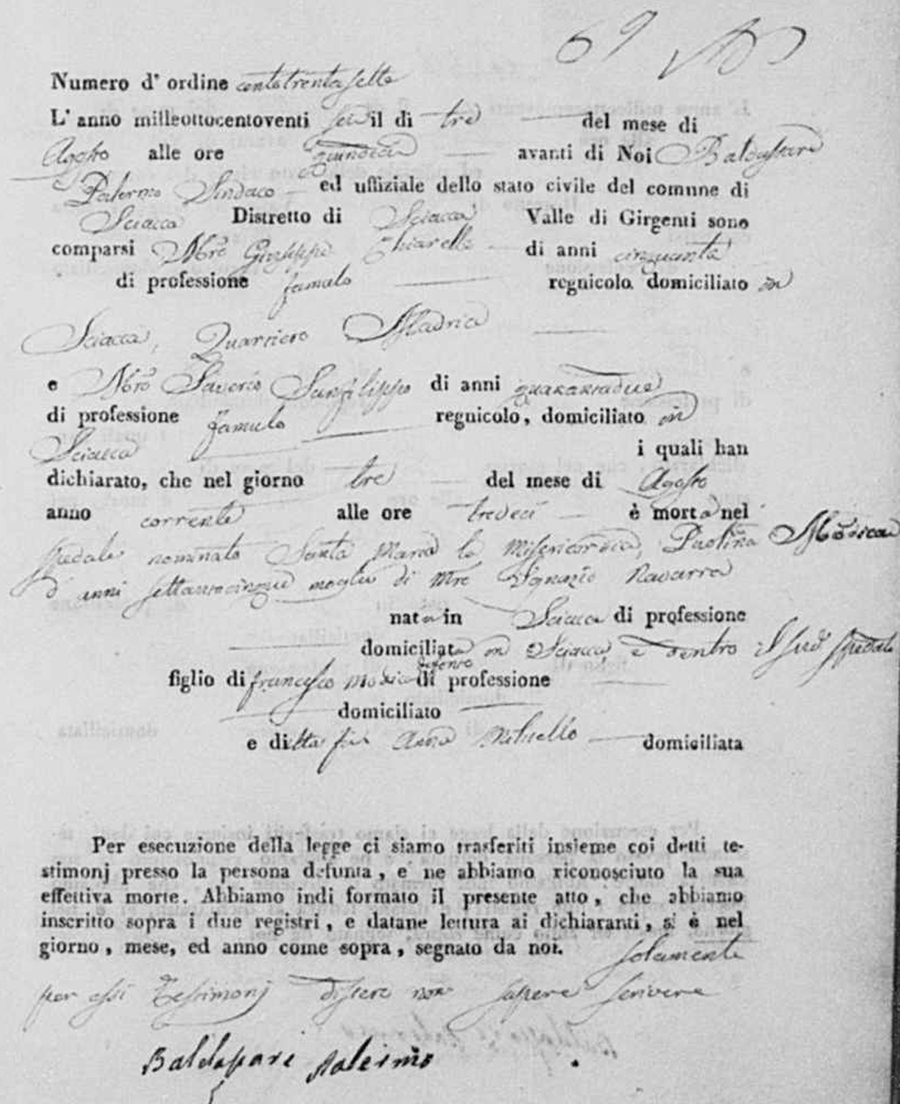 69
Numero d' ordine centotrentasette
L' anno milleottocentoventi sei il di tre del mese di
Agosto alle ore quindici avanti di Noi Baldassare
Palermo Sindaco ed uffiziale dello stato civile del comune di
Sciacca Distretto di Sciacca Valle di Girgenti sono
comparsi Mro Giuseppe Chiarello di anni cinquanta
di professione famulo regnicolo domiciliato in
Sciacca, Quartiero Madrice
e Mro Saverio Sanfilippo di anni quarantadue
di professione famulo regnicolo, domiciliato in
Sciacca i quali han
dichiarato, che nel giorno tre del mese di Agosto
anno corrente alle ore tredeci è morta nel
spedale nominato Santa Maria la Misericordia, Paolina Modica
d' anni settantacinque moglie di Mro Ignazio Navarra
nata in Sciacca di professione
domiciliata in Sciacca e dentro il sudo spedale
figlio di Francesco Modica defonto di professione
domiciliato
e di Anna domiciliata
Per esecuzione della legge ci siamo trasferiti insieme coi detti te-
stimonj presso la persona defunta, e ne abbiamo riconosciuto la sua
effettiva morte. Abbiamo indi formato il presente atto, che abbiamo
inscritto sopra i due registri, e datane lettura ai dichiaranti, si è nel
giorno, mese, ed anno come sopra, segnato da noi. solamente
per essi Testimonj dissero non sapere scrivere
Baldassare Palermo